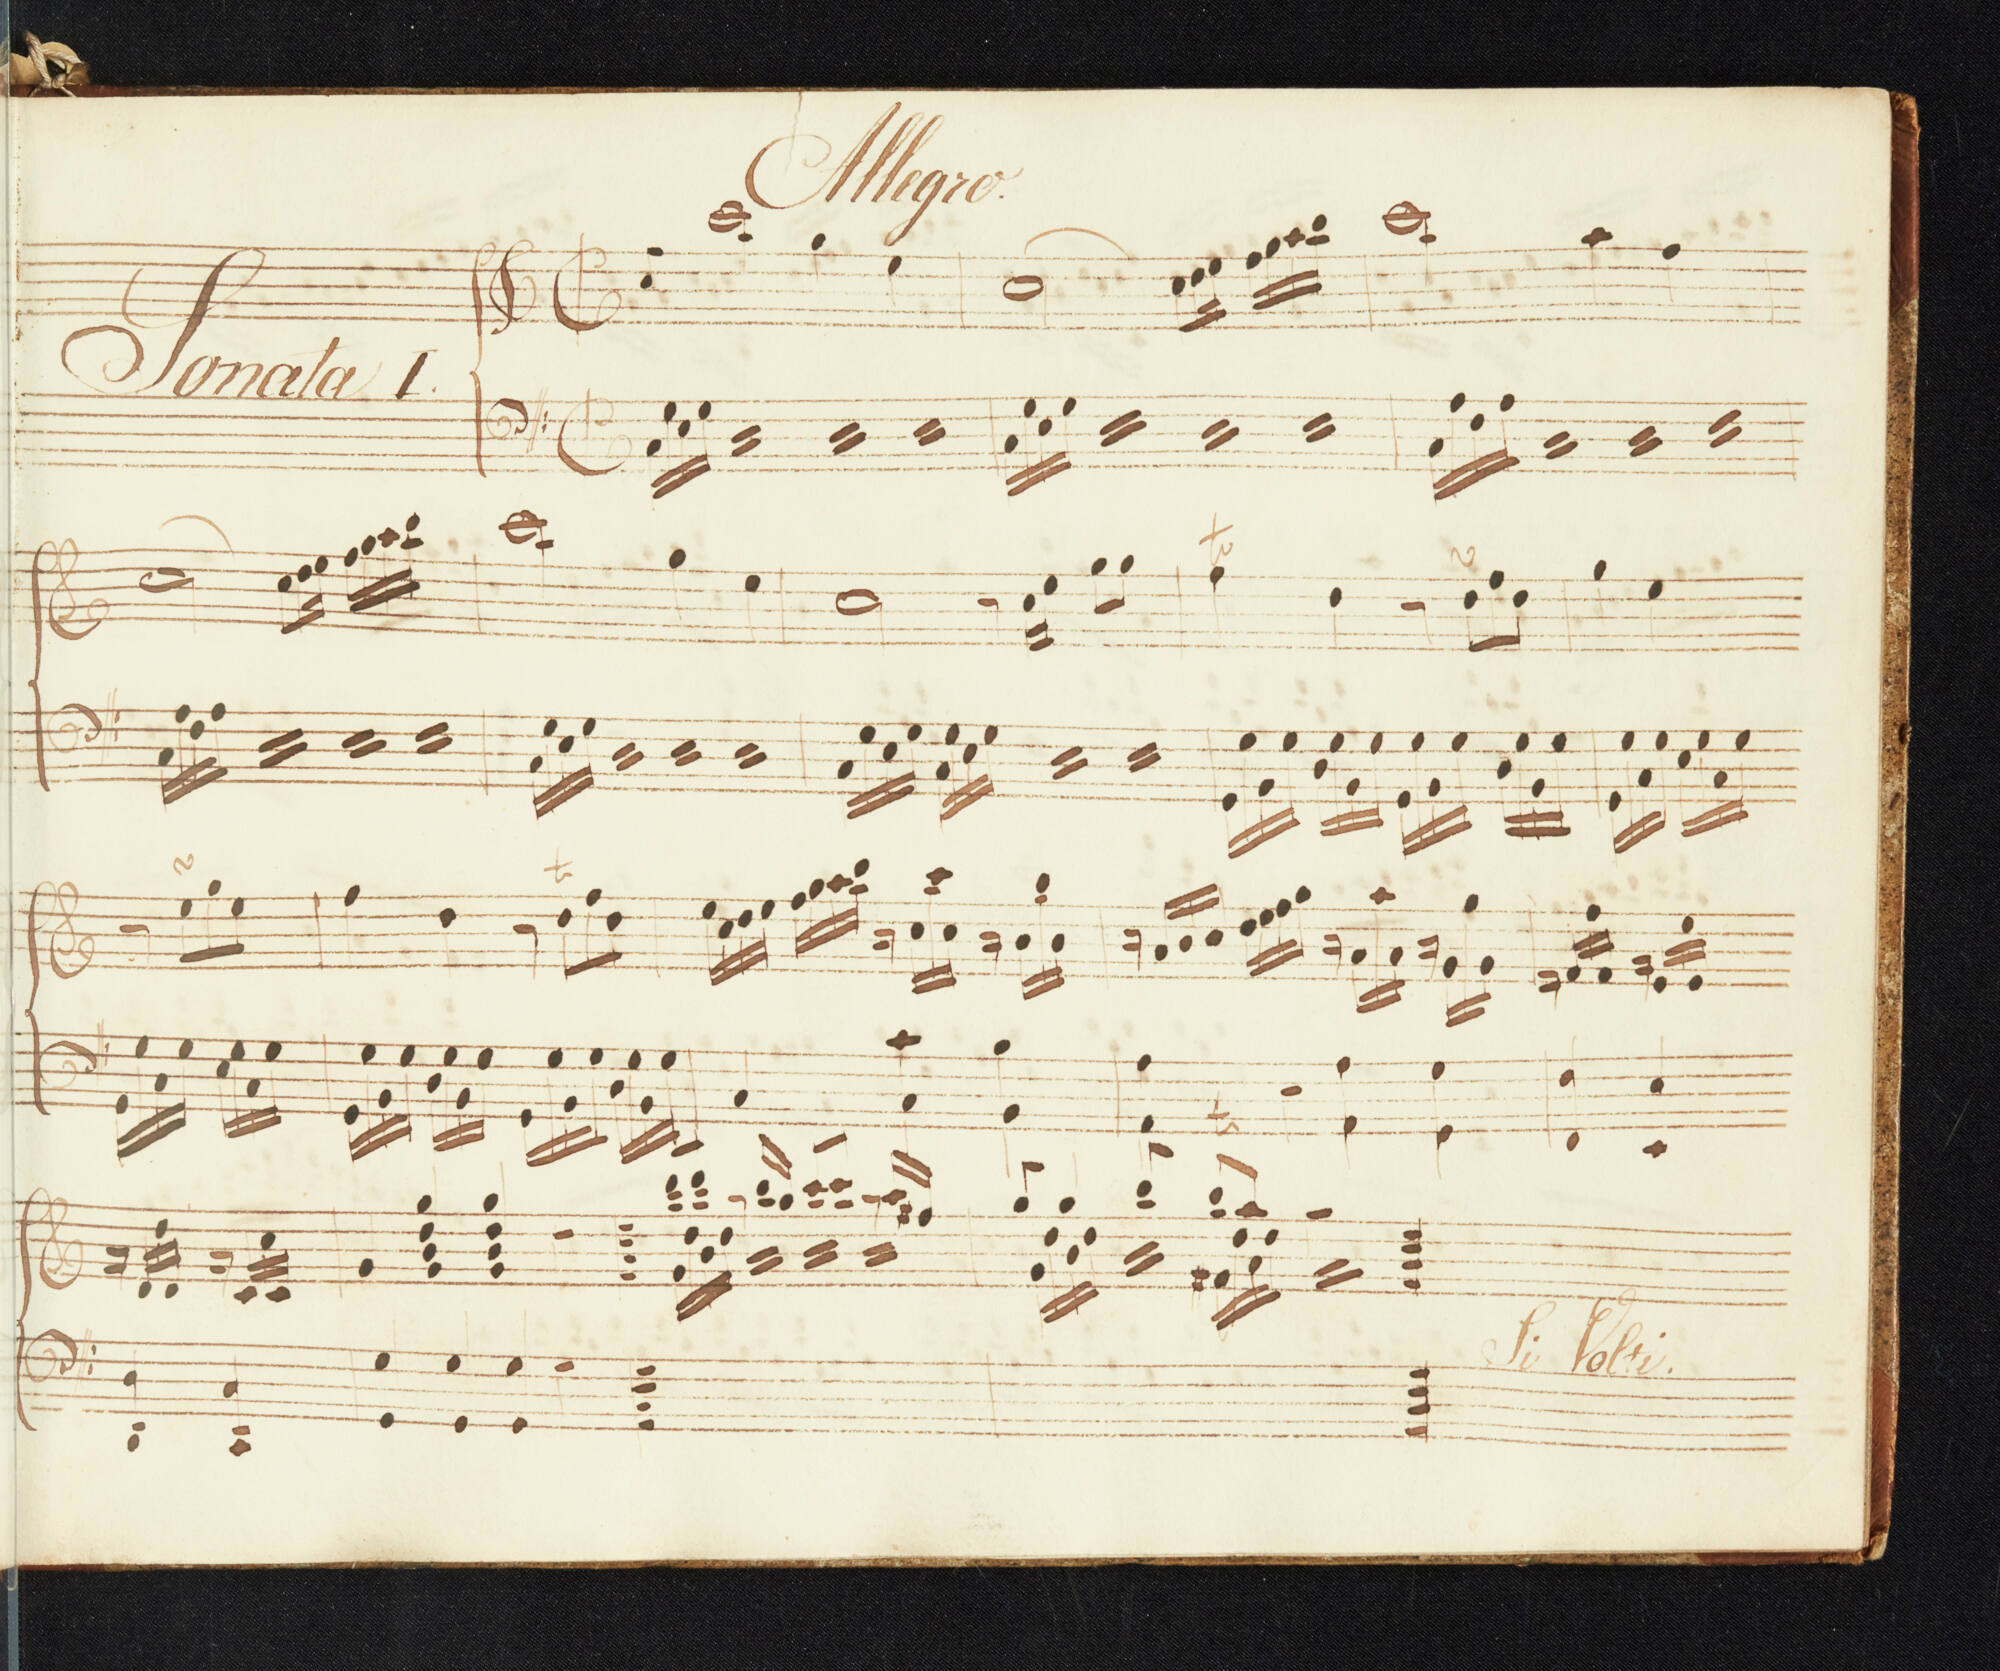 Allegro.
Sonata I.
Si Volti.